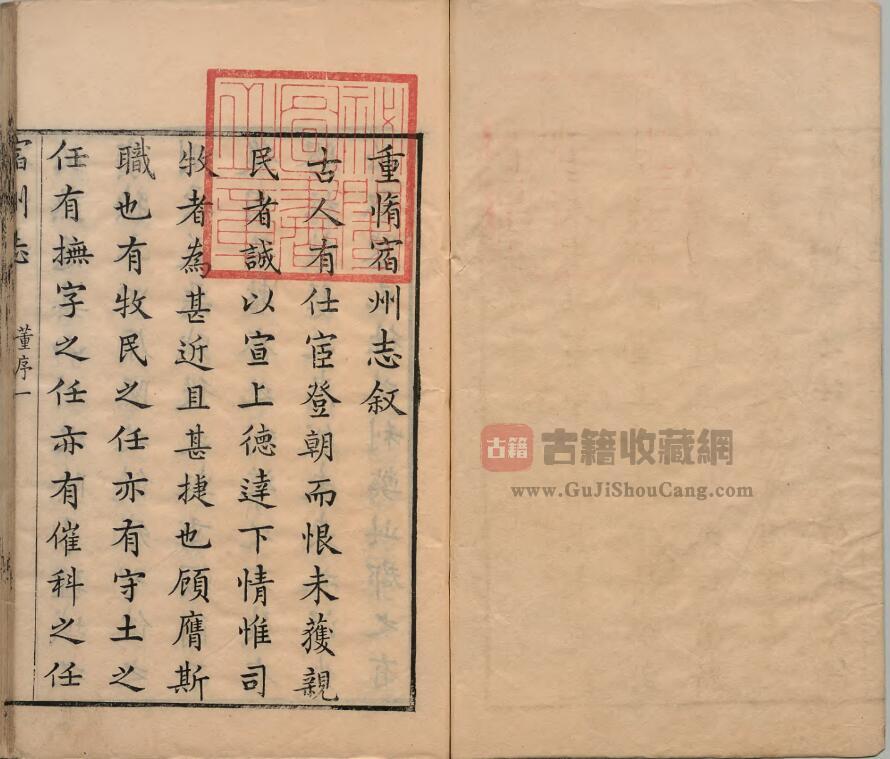 重脩宿州志叙
古人有仕宦登朝而恨未獲親
民者誠以宣上德達下情惟司
牧者為甚近且甚捷也顧膺斯
職也有牧民之任亦有守土之
任有撫字之任亦有催科之任
宿州志
董序一
祕閣
圖書
之章
古籍
古籍收藏網
www.GuJiShouCang.com